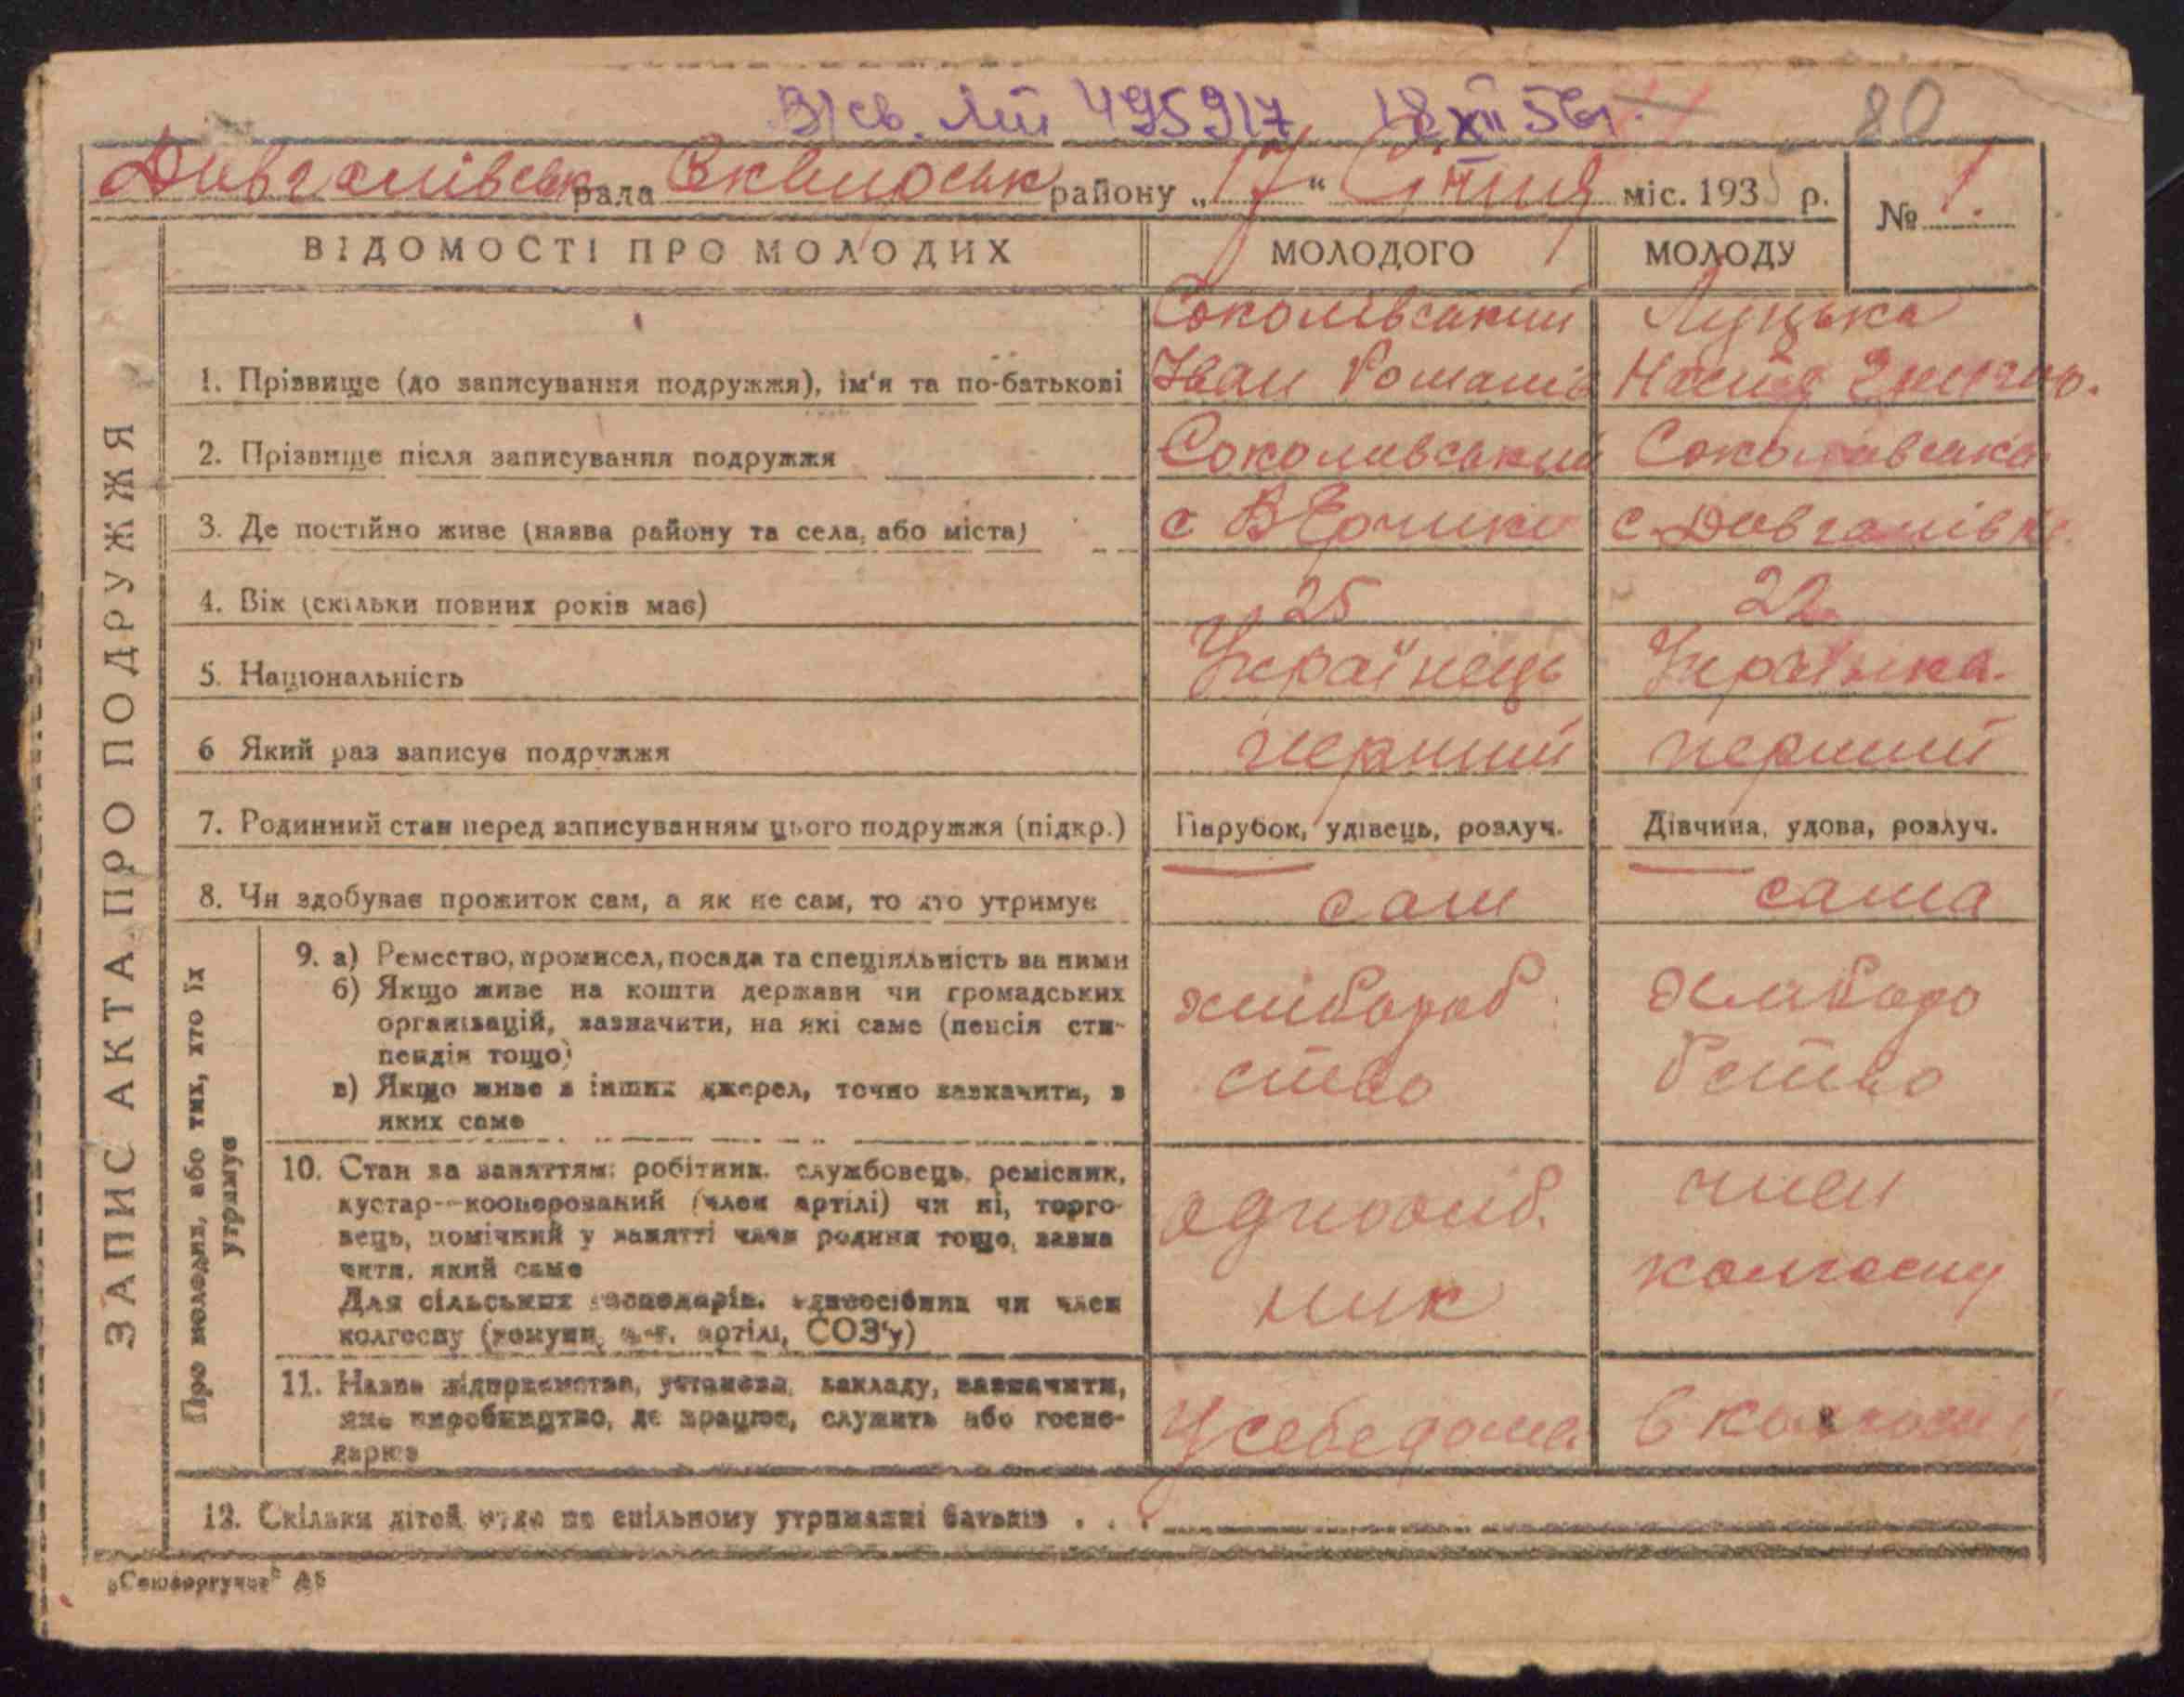 В/св. 495917 18 XII 56г.
80
Довгалівськ рада Сквирськ району „17“ Січня міс. 1935 р.
№ 1.
ВІДОМОСТІ ПРО МОЛОДИХ
МОЛОДОГО
МОЛОДУ
ЗАПИС АКТА ПРО ПОДРУЖЖЯ
1. Прізвище (до записування подружжя), ім'я та по-батькові
Соколівський
Іван Романів
Луцька
Настя
2. Прізвище після записування подружжя
Соколивський
Соколавська
3. Де постійно живе (назва району та села, або міста)
с В Єрчики
с. Довгалівка
4. Вік (скільки повних років має)
25
22
5. Національність
Українець
Українка.
6 Який раз записує подружжя
перший
перший
7. Родинний стан перед записуванням цього подружжя (підкр.)
Парубок, удівець, розлуч.
Дівчина, удова, розлуч.
8. Чи здобуває прожиток сам, а як не сам, то хто утримує
сам
сама
Про молодих, або тих, хто їх
утримує
9. а) Ремество, промисел, посада та спеціяльність за ними
б) Якщо живе на кошти держави чи громадських
організацій, зазначити, на які саме (пенсія сти-
пендія тощо)
в) Якщо живе з інших джерел, точно зазначити, з
яких саме
хлібороб
ство
хлиборо
бство
10. Стан за заняттям: робітник, службовець, ремісник,
кустар--кооперований (член артілі) чи ні, торго-
вець, помічний у занятті член родини тощо, зазна
чити, який саме
Для сільських господарів, одноосібник чи член
колгоспу (комуни, с.-г. артілі, СОЗ'у)
одноосіб.
ник
член
колгоспу
11. Назва підприємства, установи, закладу, зазначити,
яке виробництво, де працює, служить або госпо-
дарює
У себе дома
в колгоспі
12. Скільки дітей буде на спільному утриманні батьків . . .